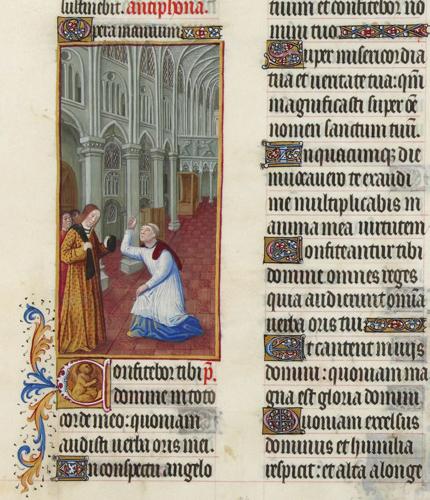 sustinebit. antiphona.
Opera manuum
Confitebor tibi p̄.
domine in toto
corde meo: quoniam
audisti uerba oris mei.
In conspectu angelo
tuum et confitebor no
mini tuo
Super misericordia
tua et ueritate tua: qm̄
magnificasti super oē
nomen sanctum tuū.
In quacumqz die
inuocauero te exaudi
me multiplicabis in
anima mea uirtutem
Confiteantur tibi
domine omnes reges
quia audierunt omīa
uerba oris tui
Et cantent in uijs
domini: quoniam ma
gna est gloria domini
Quoniam excelsus
dominus et humilia
respicit: et alta a longe